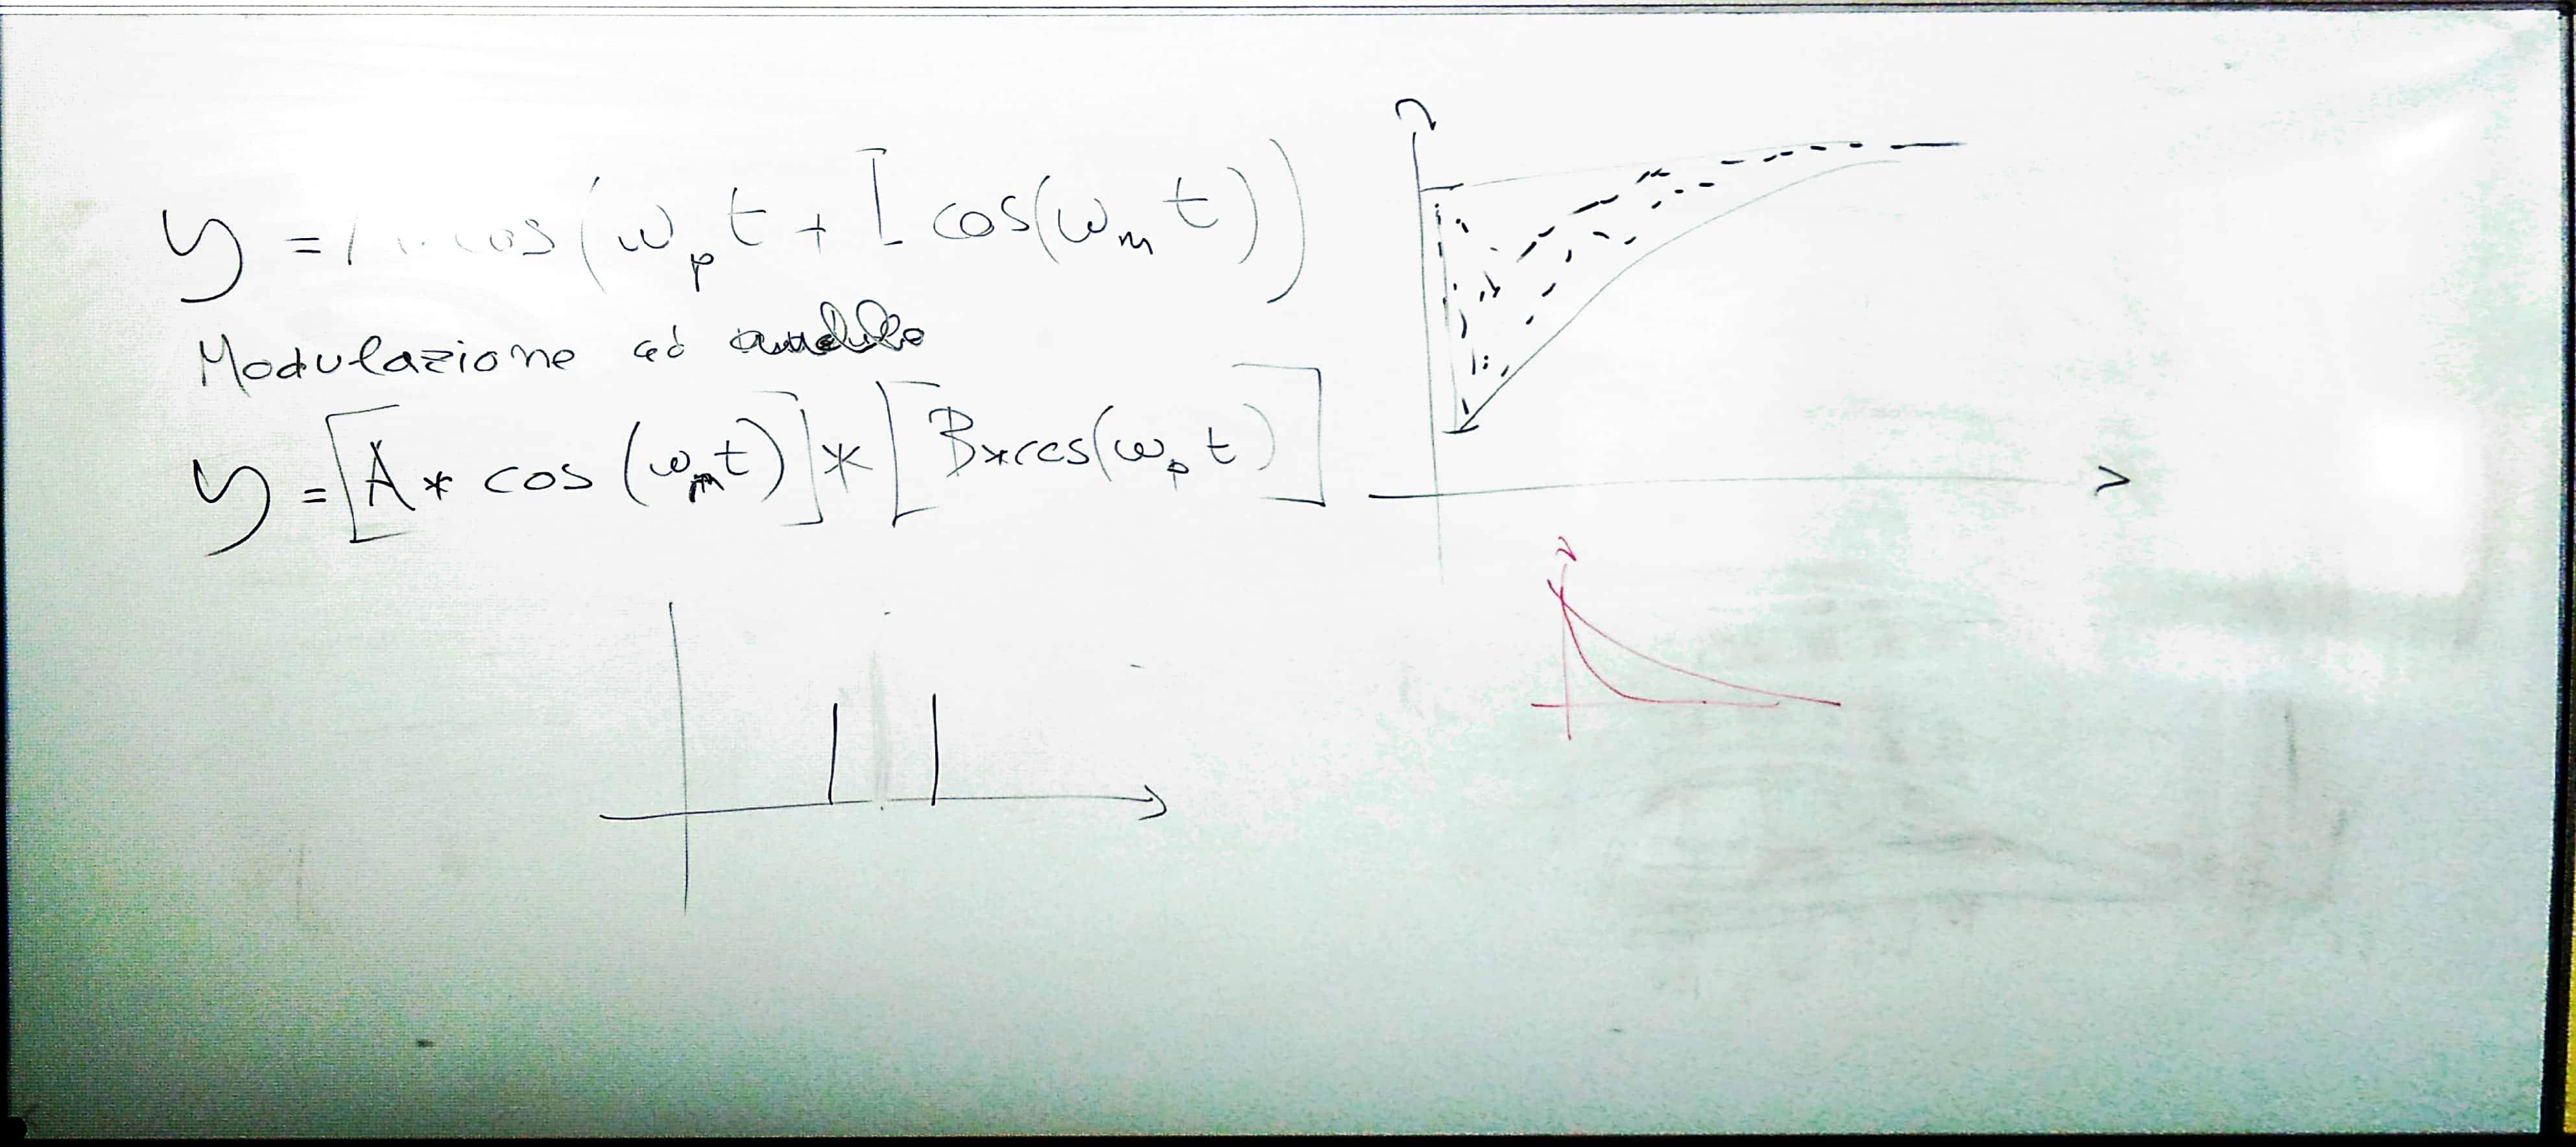 y = cos(ω_p t + I cos(ω_m t))
Modulazione ad anello
y = [A * cos (ω_m t)] * [B * cos(ω_p t)]